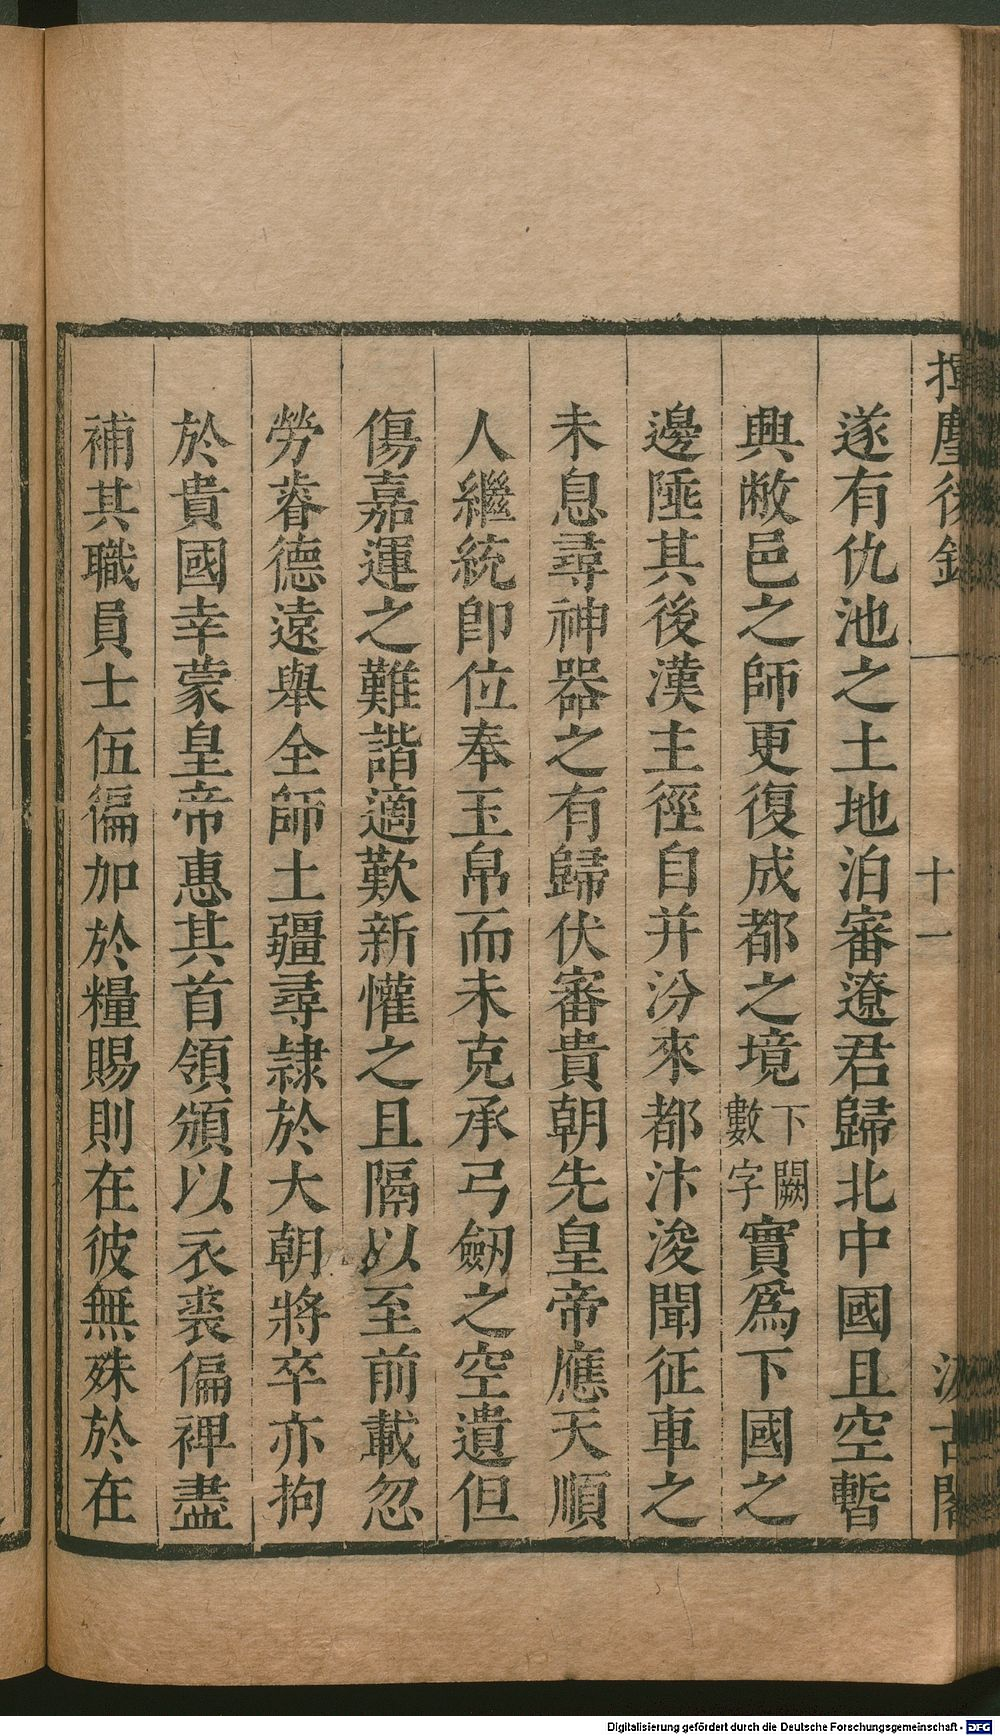 揮麈後錄 一 十一 汲古閣
遂有仇池之土地泊審遼君歸北中國且空暫
興敝邑之師更復成都之境下闕數字實爲下國之
邊陲其後漢主徑自并汾來都汴浚聞征車之
未息尋神器之有歸伏審貴朝先皇帝應天順
人繼統卽位奉玉帛而未克承弓劒之空遺但
傷嘉運之難諧適歎新懽之且隔以至前載忽
勞睠德遠舉全師土疆尋隷於大朝將卒亦拘
於貴國幸蒙皇帝惠其首領頒以衣裘偏裨盡
補其職員士伍徧加於糧賜則在彼無殊於在
Digitalisierung gefördert durch die Deutsche Forschungsgemeinschaft - DFG